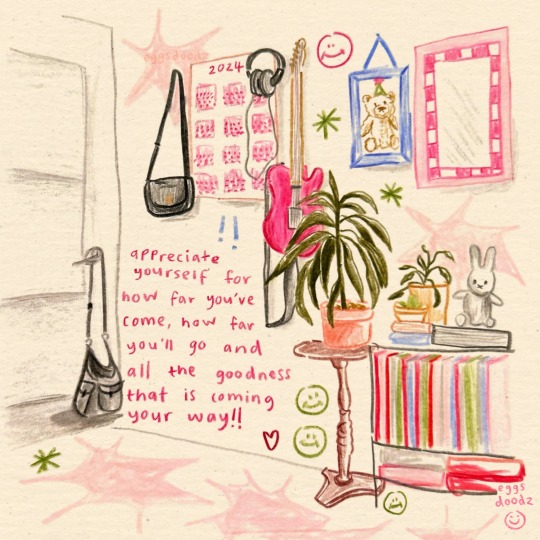 eggsdoodz
2024
!!
appreciate
yourself for
how far you've
come, how far
you'll go and
all the goodness
that is coming
your way!!
eggs
doodz